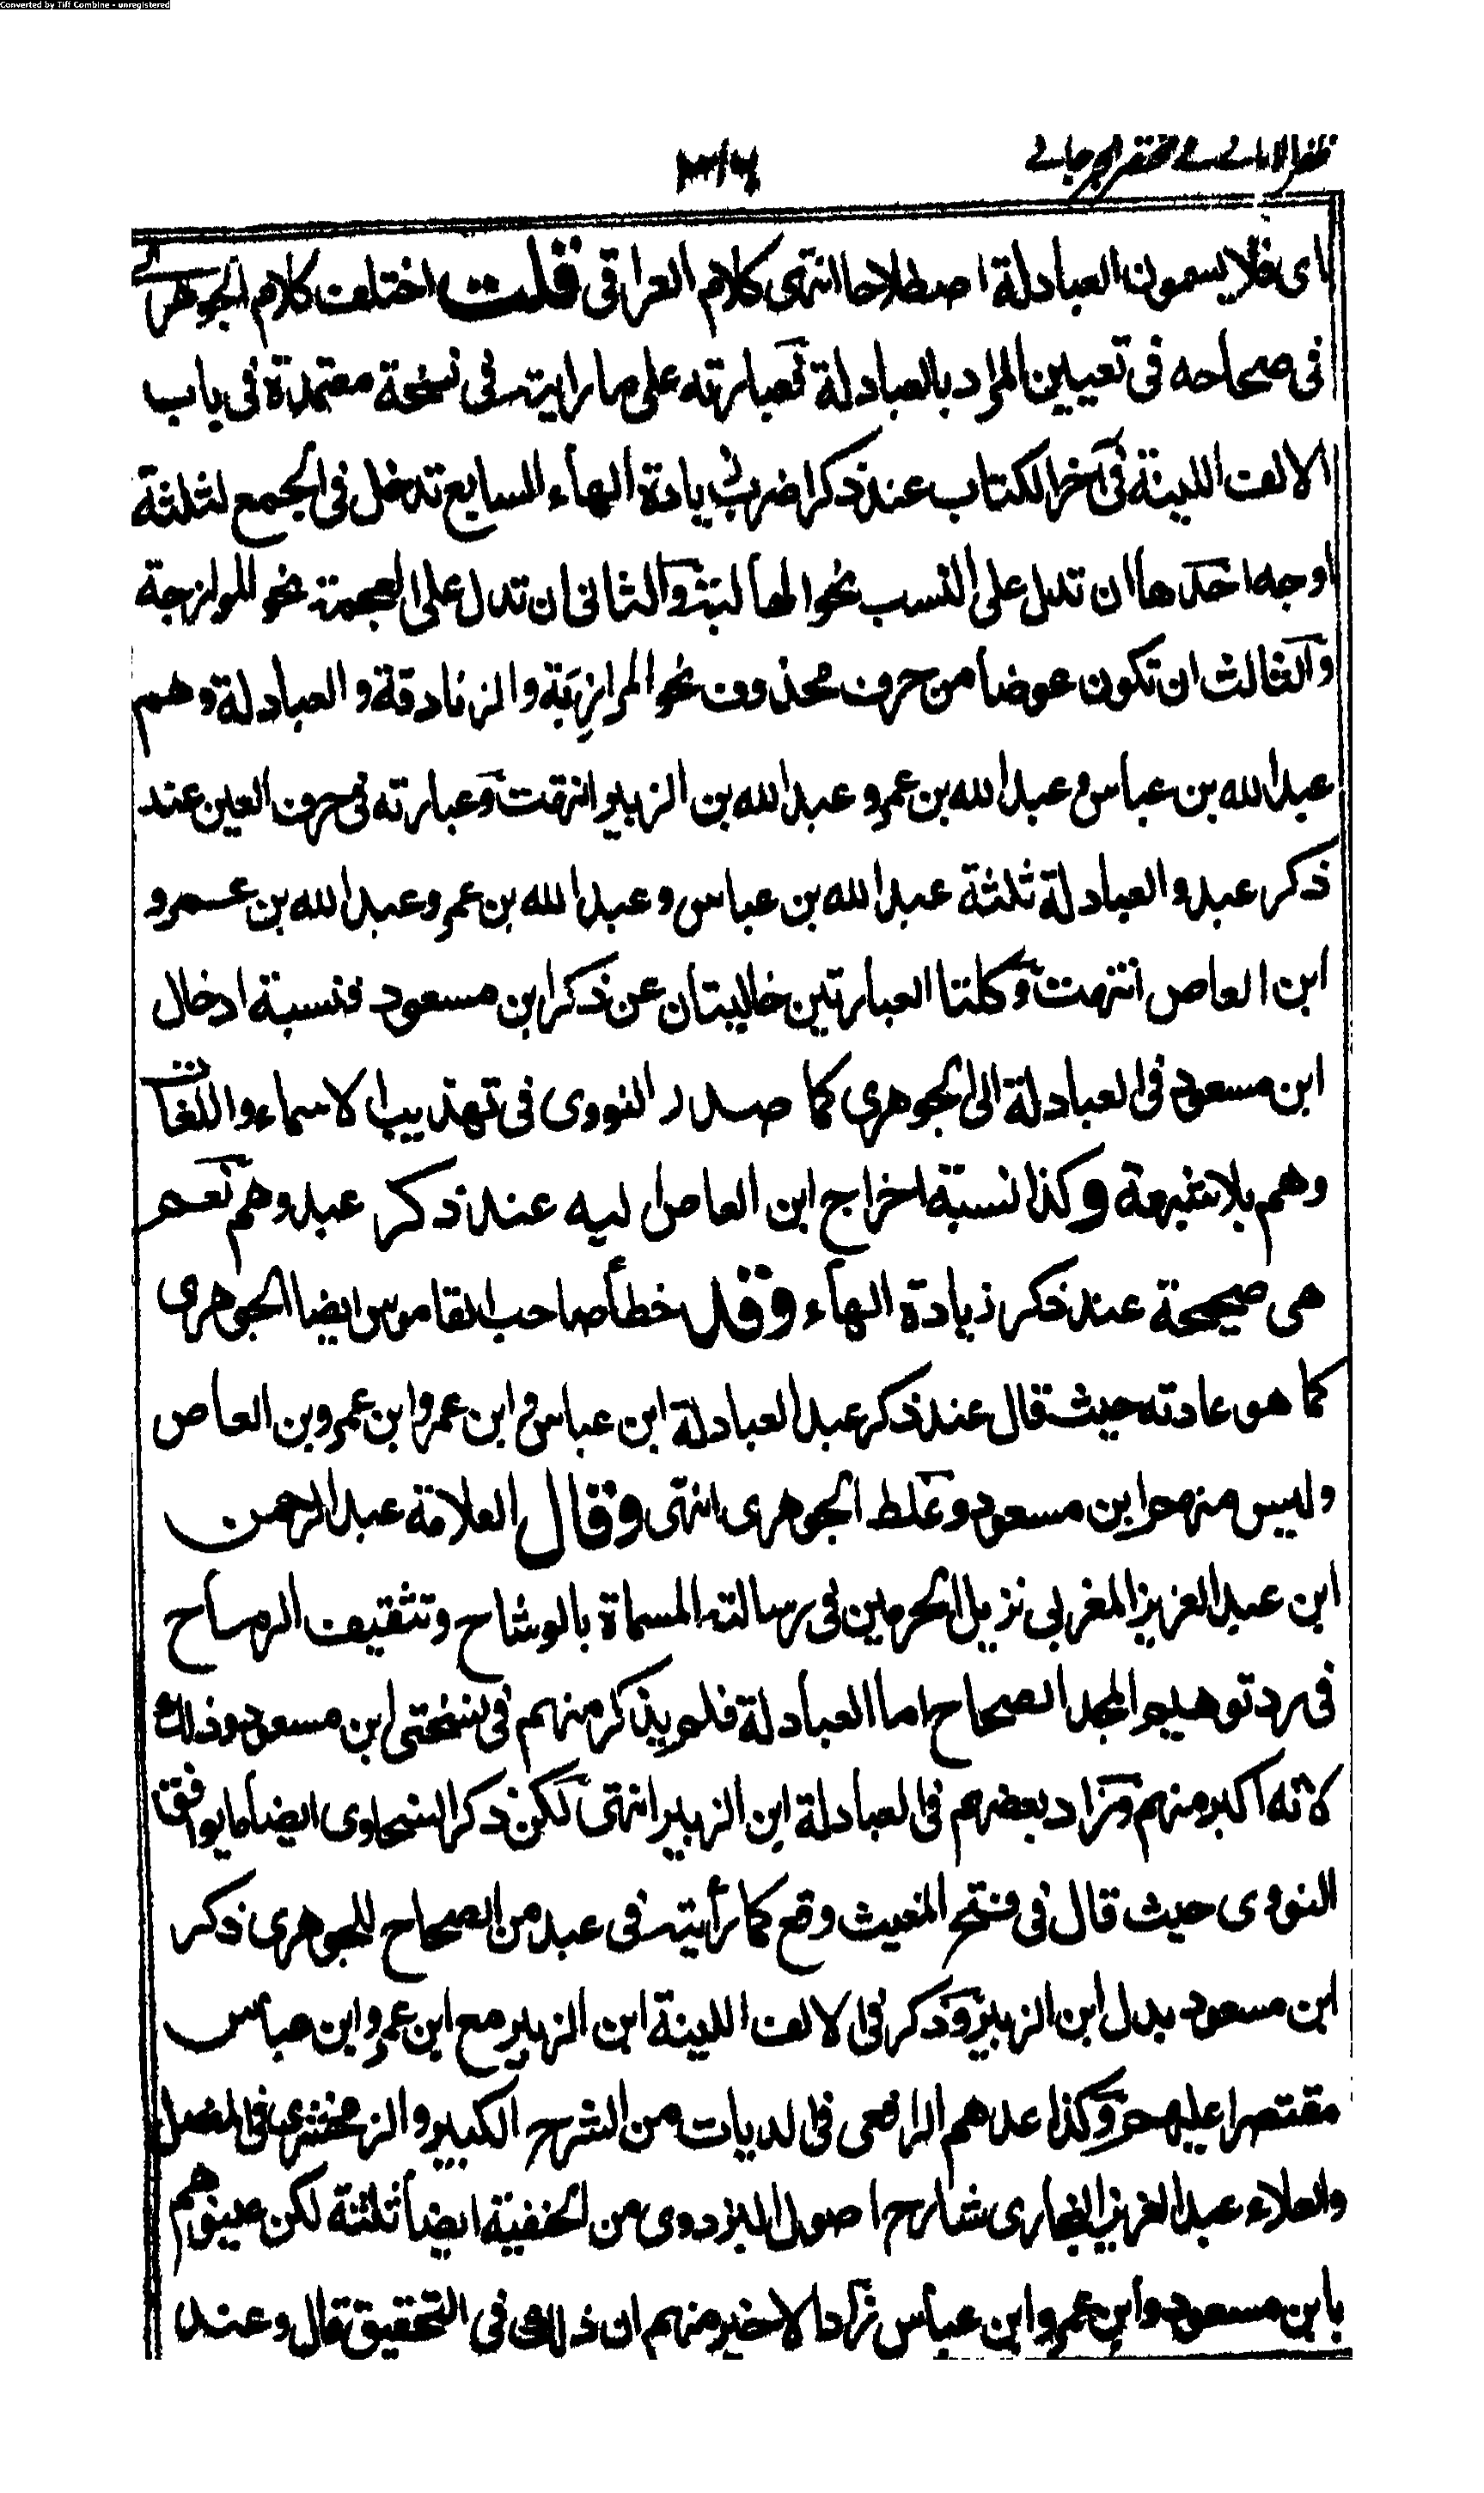 Converted by Tiff Combine - unregistered
ظفر الاماني في مختصر الجرجاني
اى فلا يسمون العبادلة اصطلاحا انتهى كلام العراقى قلت اختلف كلام الجوهرى
فى صحاحه فى تعيين المراد بالعبادلة فعبارته على ما رايته فى نسخة معتمدة فى باب
الالف اللينة فى آخر الكتاب عند ذكر اضرب زيادة الهاء السابع تدخل فى الجمع لثلثة
اوجه احدها ان تدل على النسب نحو المهالبة والثانى ان تدل على العجمة نحو الموازجة
والثالث ان تكون عوضا من حرف محذوف نحو المرازبة والزنادقة والعبادلة وهم
عبد الله بن عباس وعبد الله بن عمر وعبد الله بن الزبير انتهت وعبارته فى حرف العين عند
ذكر عبد والعبادلة ثلثة عبد الله بن عباس وعبد الله بن عمر وعبد الله بن عمرو
ابن العاص انتهت وكلتا العبارتين خاليتان عن ذكر ابن مسعود فنسبة ادخال
ابن مسعود فى العبادلة الى الجوهرى كما صدر النووى فى تهذيب الاسماء واللغات
وهم بلا شبهة وكذا نسبة اخراج ابن العاص اليه عند ذكر عبد وهم نعم
هى صحيحة عند ذكر زيادة الهاء وقد خطأ صاحب القاموس ايضا الجوهرى
كما هو عادته حيث قال عند ذكر عبد العبادلة ابن عباس وابن عمر وابن عمرو بن العاص
وليس منهم ابن مسعود وغلط الجوهرى انتهى وقال العلامة عبد الرحمن
ابن عبد العزيز المغربى نزيل الحرمين فى رسالته المسماة بالوشاح وتثقيف الرماح
فى رد توهيم المجد الصحاح اما العبادلة فلم يذكر منهم فى نسختى ابن مسعود وذلك
لانه اكبر منهم وزاد بعضهم فى العبادلة ابن الزبير انتهى لكن ذكر السخاوى ايضا ما يوافق
النووى حيث قال فى فتح المغيث وقع كما رأيته فى عبد من الصحاح للجوهرى ذكر
ابن مسعود بدل ابن الزبير وذكر فى الالف اللينة ابن الزبير مع ابن عمر وابن عباس
مقتصرا عليهم وكذا عدهم الرافعى فى الديات من الشرح الكبير والزمخشرى فى المفصل
والعلاء عبد العزيز البخارى شارح اصول البزدوى من الحنفية ايضا ثلثة لكن عينوهم
بابن مسعود وابن عمر وابن عباس زاد الاخير منهم ان ذلك فى التحقيق قال وعند